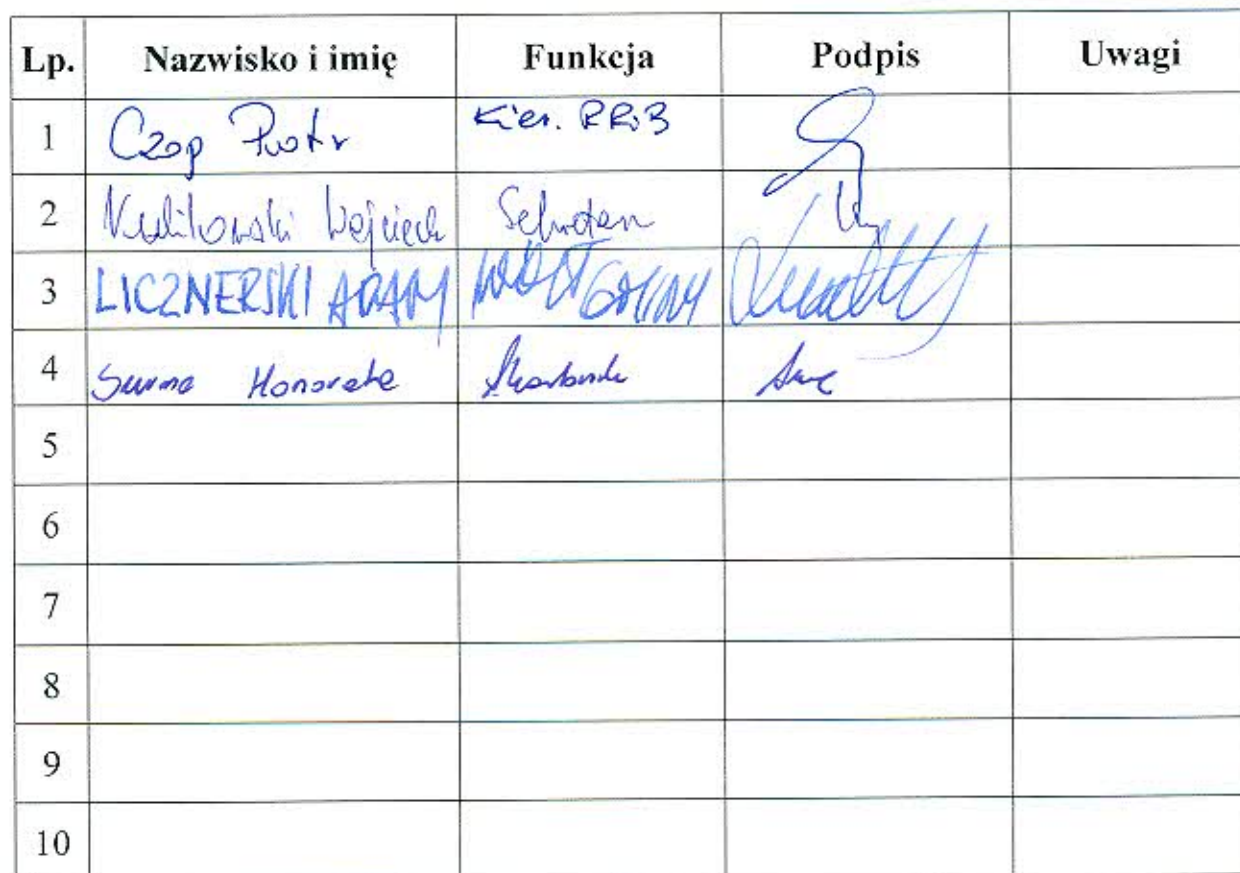 Lp. Nazwisko i imię Funkcja Podpis Uwagi
1 Czop Piotr Kier. RRiB
2 Kulikowski Wojciech Sekretarz
3 LICZNERSKI ADAM WÓJT GMINY
4 Surma Honorata Skarbnik
5
6
7
8
9
10